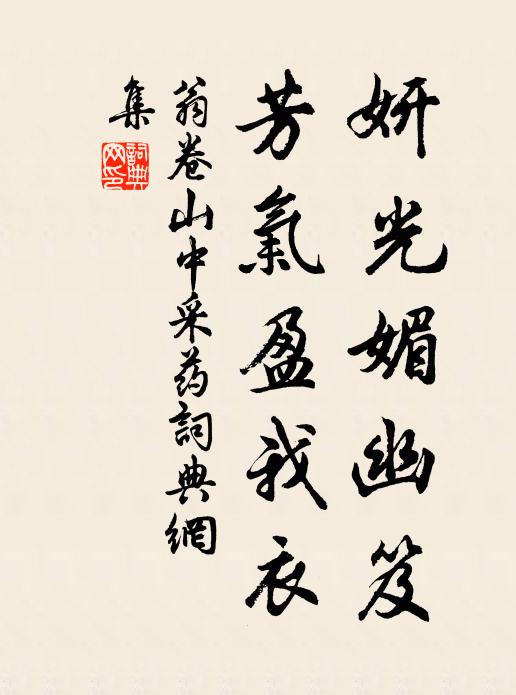 妍光媚幽笈
芳氣盈我衣
翁卷山中采药詞典網
集
詞典網印